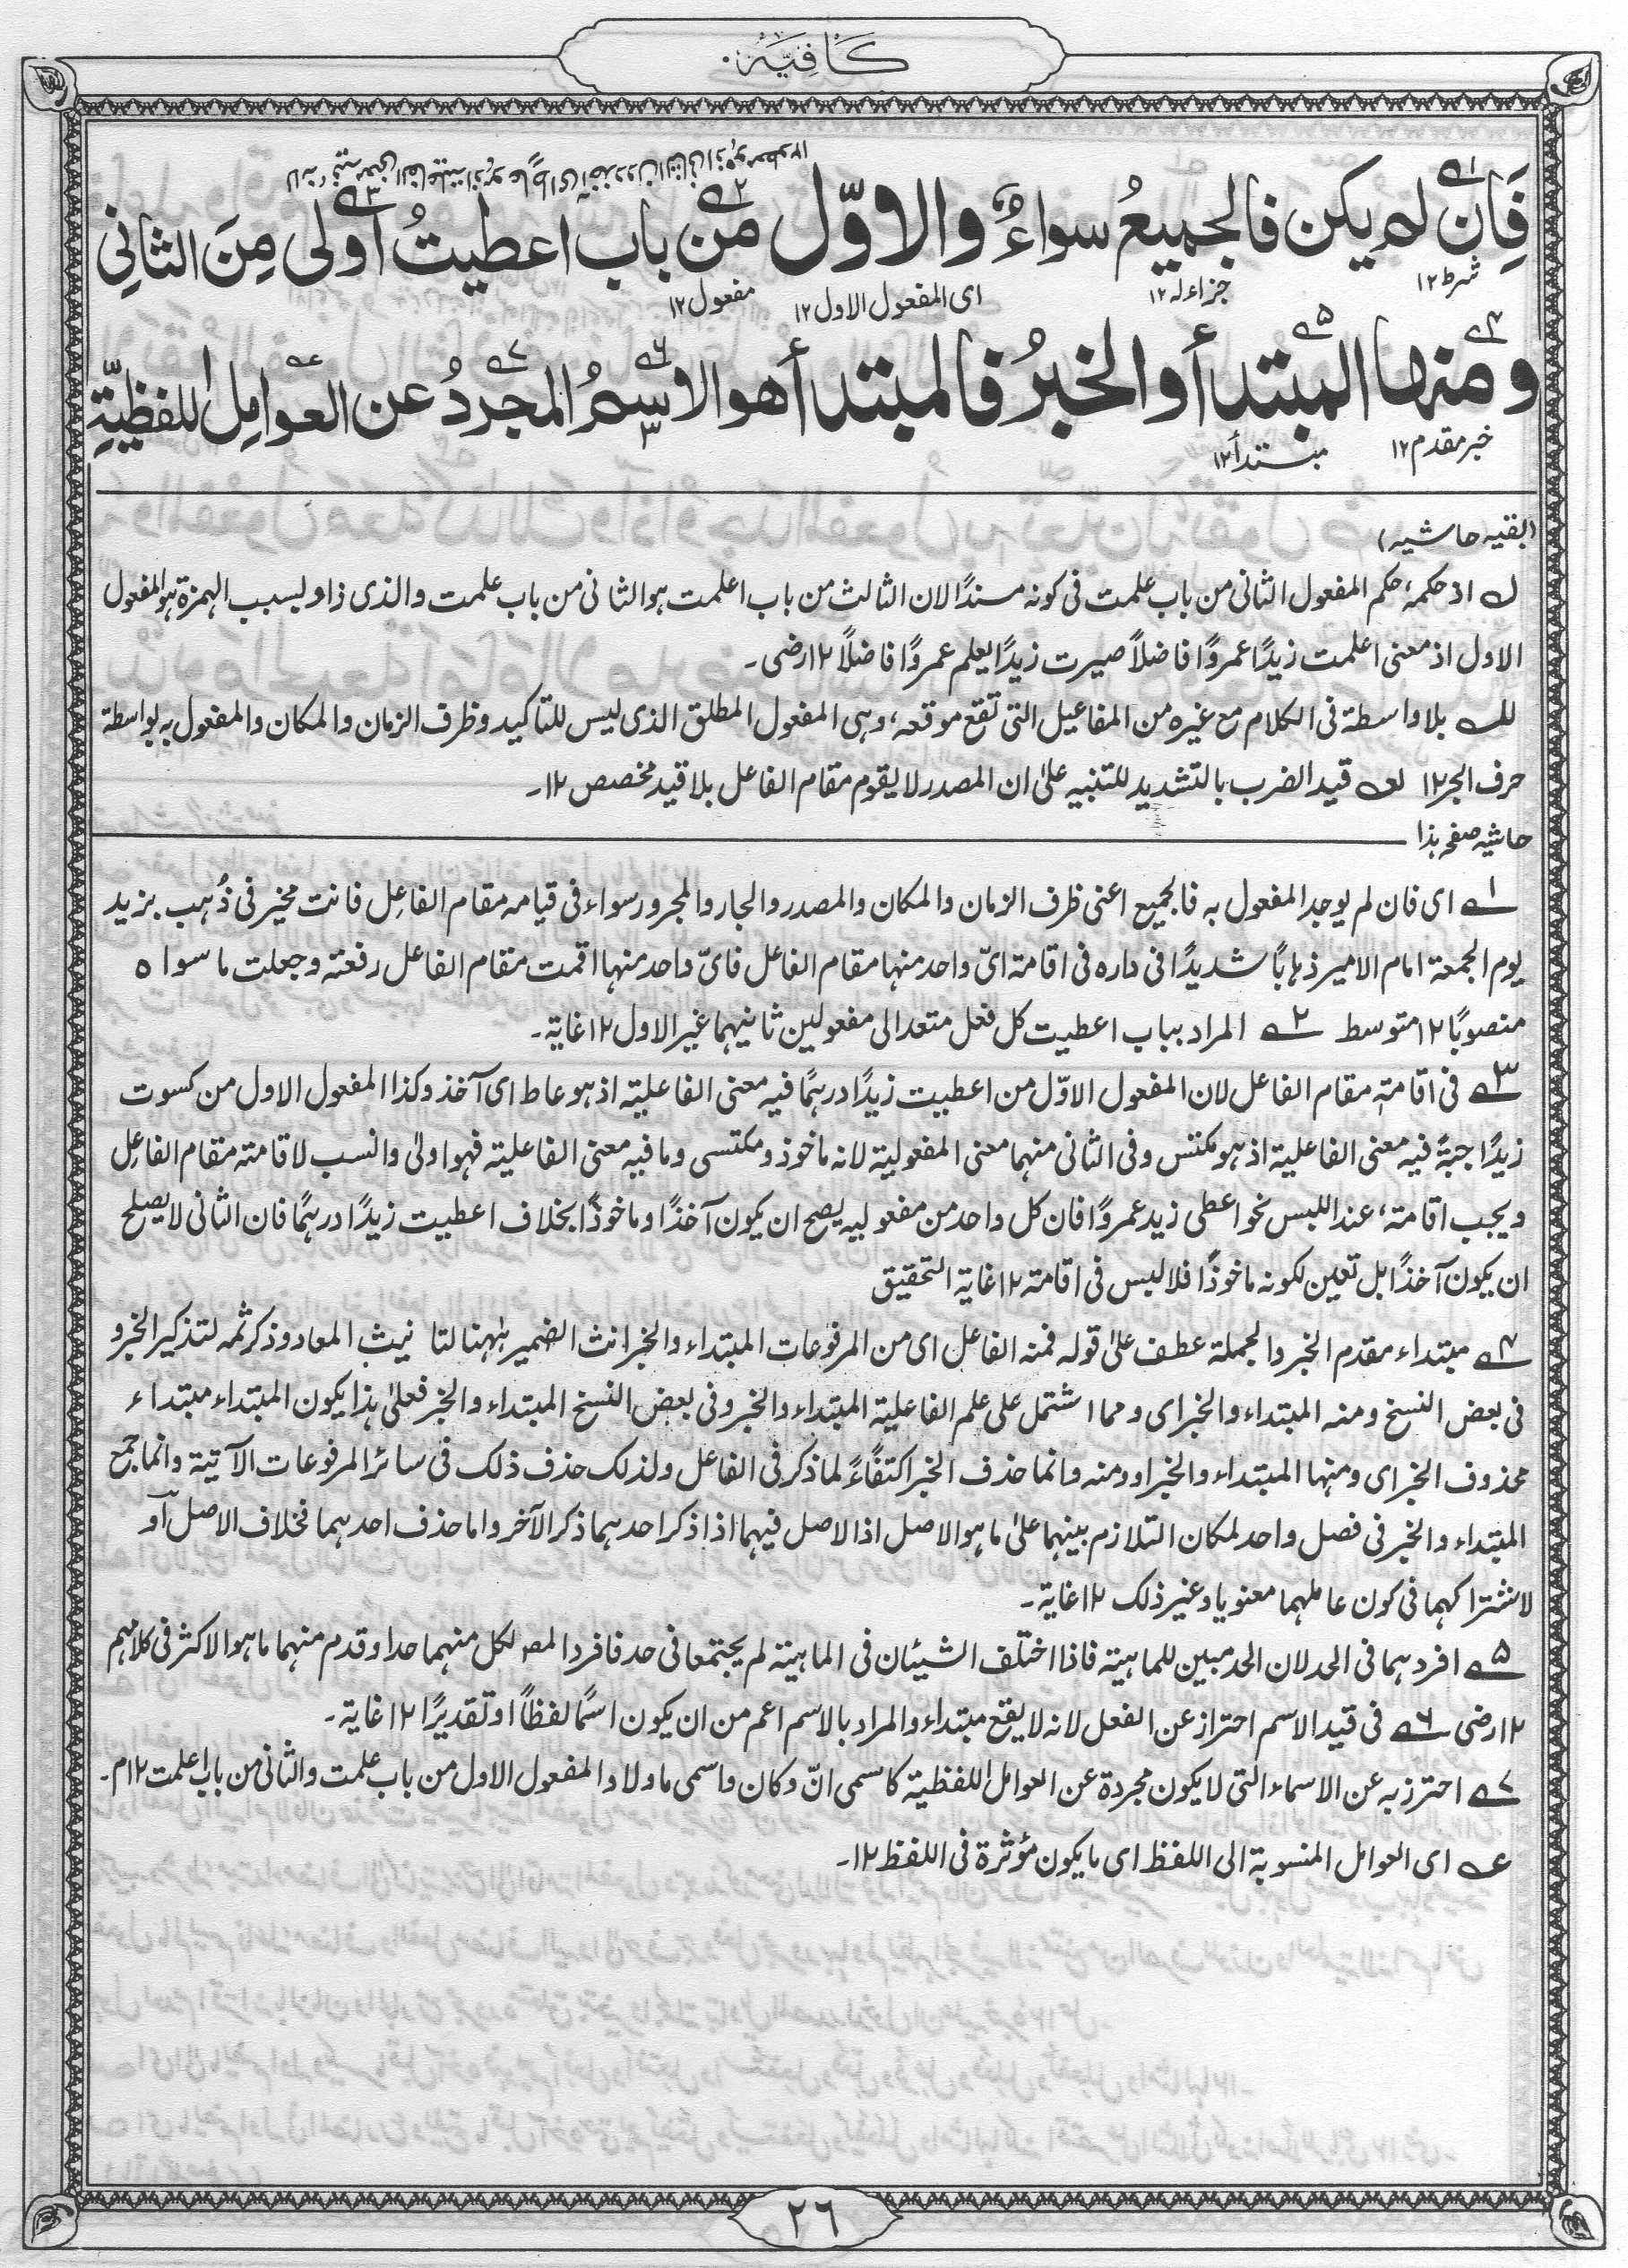 كَافِيَه
فَإن لم يكن فالجميعُ سواءٌ والاوّل من باب اعطيتُ أولى مِنَ الثاني
شرط ١٢ جزاء له ١٢ اى المفعول الاول ١٢ مفعول ١٢
ومنها المبتدأ والخبرُ فالمبتدأ هو الاسمُ المجردُ عن العوامِلِ اللفظيّةِ
خبر مقدم ١٢ مبتدأ ١٢
(بقيه حاشيه)
ك اذ حكمه حكم المفعول الثانى من باب علمت فى كونه مسندًا لان الثالث من باب اعلمت هو الثانى من باب علمت والذى زاد بسبب الهمزة هو المفعول
الاول اذ معنى اعلمت زيدًا عمروًا فاضلاً صيرت زيدًا يعلم عمروًا فاضلاً ١٢ رضى۔
لل بلا واسطة فى الكلام مع غيره من المفاعيل التى تقع موقعه، وهى المفعول المطلق الذى ليس للتاكيد وظرف الزمان والمكان والمفعول به بواسطة
حرف الجر ١٢ لعه قيد الضرب بالتشديد للتنبيه على ان المصدر لا يقوم مقام الفاعل بلا قيد مخصص ١٢۔
حاشيه صفحه هذا
١ اى فان لم يوجد المفعول به فالجميع اعنى ظرف الزمان والمكان والمصدر والجار والمجرور سواء فى قيامه مقام الفاعِل فانت مخير فى ذُهب بزيد
يوم الجمعة امام الامير ذهابًا شديدًا فى داره فى اقامة اىّ واحد منها مقام الفاعل فاىّ واحد منها اقمت مقام الفاعل رفعته وجعلت ما سواه
منصوبًا ١٢ متوسط ٢ المراد بباب اعطيت كل فعل متعد الى مفعولين ثانيهما غير الاول ١٢ غاية۔
٣ فى اقامته مقام الفاعل لان المفعول الاوّل من اعطيت زيدًا درهمًا فيه معنى الفاعلية اذ هو عاط اى آخذ وكذا المفعول الاول من كسوت
زيدًا جبةً فيه معنى الفاعلية اذ هو مكتس وفى الثانى منهما معنى المفعولية لانه ماخوذ ومكتسى وما فيه معنى الفاعلية فهو اولىٰ وانسب لاقامته مقام الفاعِل
ويجب اقامته عند اللبس نحو اعطى زيد عمروًا فان كل واحد من مفعوليه يصح ان يكون آخذًا وماخوذًا بخلاف اعطيت زيدًا درهمًا فان الثانى لا يصلح
ان يكون آخذًا بل تعين لكونه ماخوذًا فلا لبس فى اقامته ١٢ غاية التحقيق
٤ مبتداء مقدم الخبر والجملة عطف علىٰ قوله فمنه الفاعل اى من المرفوعات المبتداء والخبر انث الضمير ههنا لتانيث المعاد وذكر ثمه لتذكير الخبر و
فى بعض النسخ ومنه المبتداء والخبر اى ومما اشتمل على علم الفاعلية المبتداء والخبر وفى بعض النسخ المبتداء والخبر فعلىٰ هذا يكون المبتداء مبتداء
محذوف الخبر اى ومنها المبتداء والخبر او ومنه وانما حذف الخبر اكتفاءً لما ذكر فى الفاعل ولذلك حذف ذلك فى سائر المرفوعات الآتية وانما جمع
المبتداء والخبر فى فصل واحد لمكان التلازم بينهما علىٰ ما هو الاصل اذا الاصل فيهما اذا ذكر احدهما ذكر الآخر واما حذف احدهما فخلاف الاصل أو
لاشتراكهما فى كون عاملهما معنويا وغير ذلك ١٢ غاية۔
٥ افردهما فى الحد لان الحد مبين للماهية فاذا اختلف الشيئان فى الماهية لم يجتمعا فى حد فافرد المصـ لكل منهما حدا وقدم منهما ما هو الاكثر فى كلامهم
١٢ رضى ٦ فى قيد الاسم احتراز عن الفعل لانه لا يقع مبتداء والمراد بالاسم اعم من ان يكون اسمًا لفظًا او تقديرًا ١٢ غاية۔
٧ احترز به عن الاسماء التى لا يكون مجردة عن العوامل اللفظية كاسمى انّ وكان واسمى ما ولا والمفعول الاول من باب علمت والثانى من باب اعلمت ١٢ م۔
عه اى العوامل المنسوبة الى اللفظ اى ما يكون مؤثرة فى اللفظ ١٢۔
٢٦